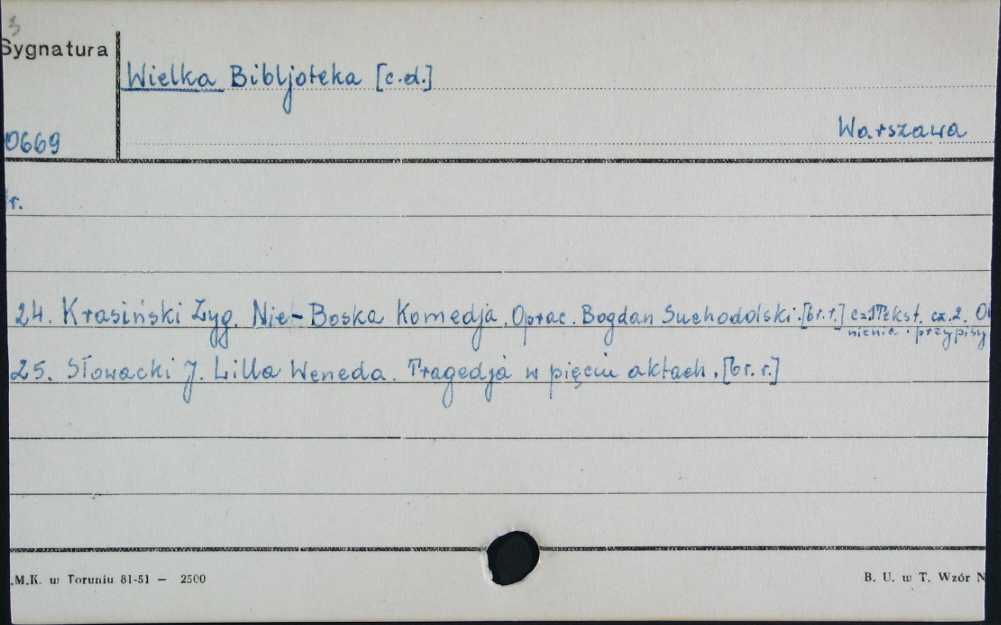 3
Sygnatura
Wielka Bibljoteka [c.d.]
0669
Warszawa
r.
24. Krasiński Zyg. Nie-Boska Komedja. Oprac. Bogdan Suchodolski. [br.r.] cz.1 Tekst. cz. 2. Ob
nienia i przypisy
25. Słowacki J. Lilla Weneda. Tragedja w pięciu aktach. [br. r.]
.M.K. w Toruniu 81-51 — 2500
B. U. w T. Wzór N